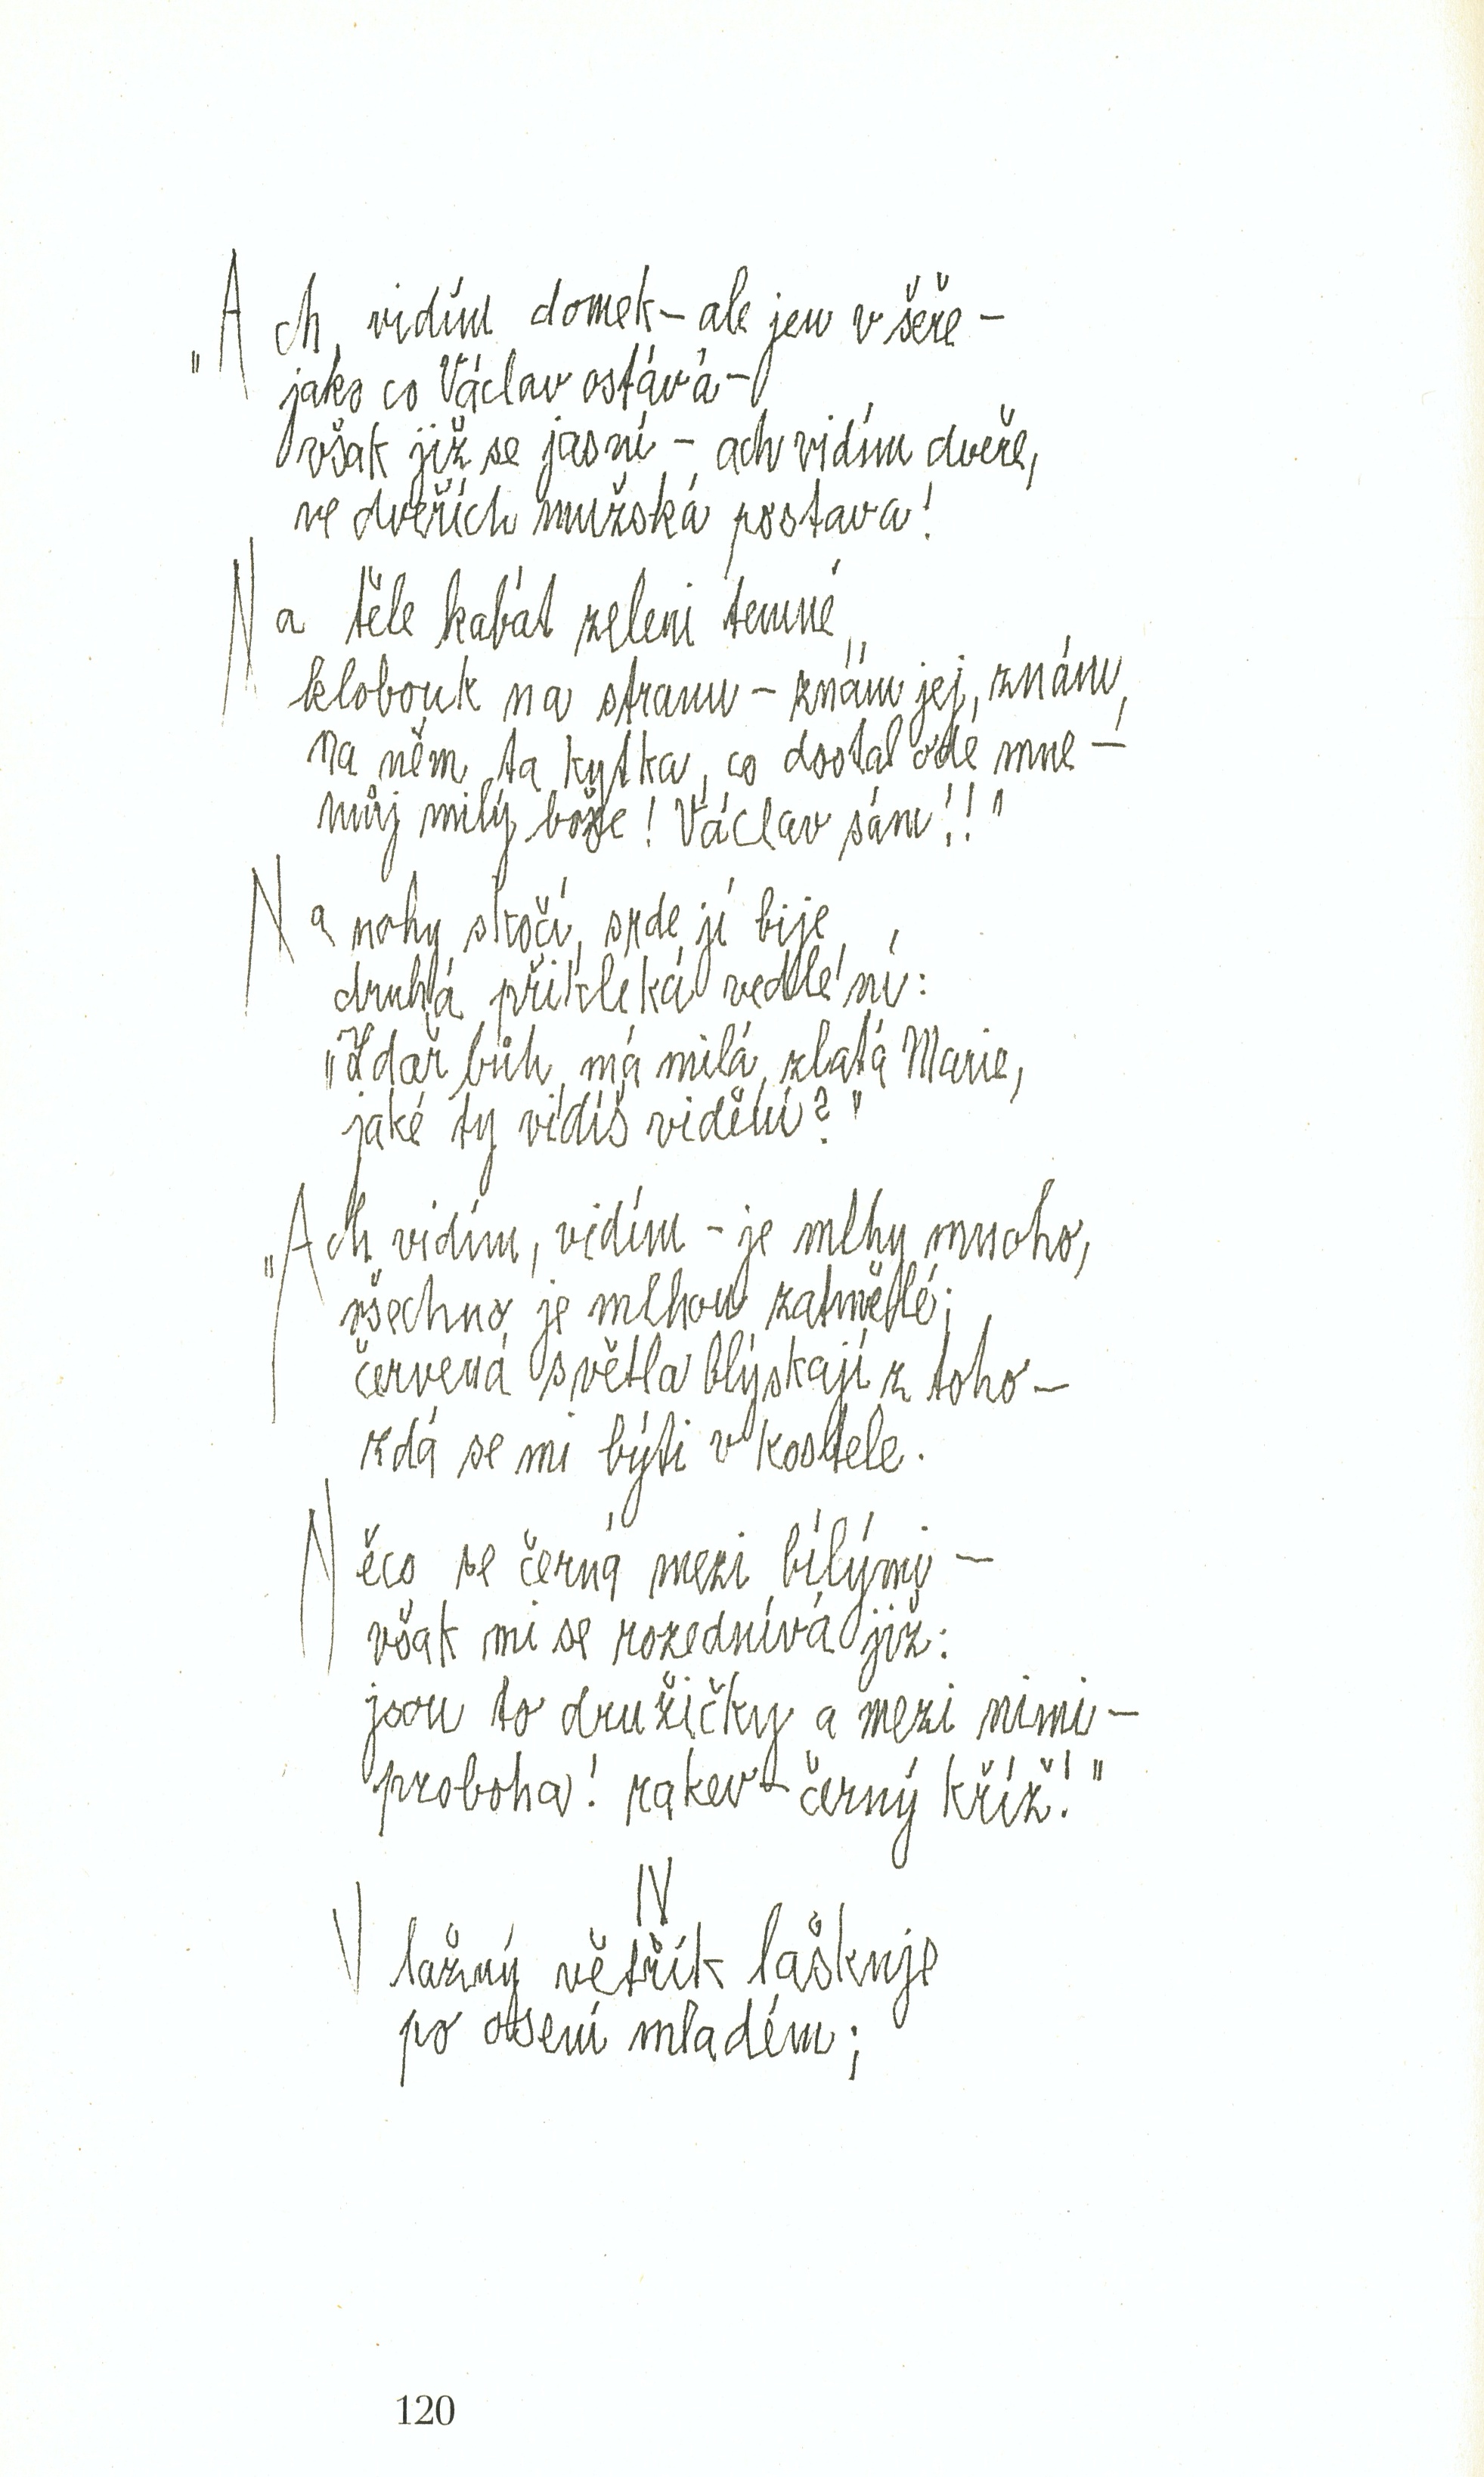 „Ach, vidím domek – ale jen v šeře –
jako co Václav ostává –
však již se jasní – ach vidím dveře,
ve dveřích mužská postava!
Na těle kabát zeleni temné,
klobouk na stranu – znám jej, znám,
na něm ta kytka, co dostal ode mne –
můj milý bože! Václav sám!!"
Na nohy skočí, srdce jí bije,
druhá přikleká vedlé ní:
„Zdař bůh, má milá, zlatá Marie,
jaké ty vidíš vidění?"
„Ach vidím, vidím – je mlhy mnoho,
všechno je mlhou zatmělé;
červená světla blýskají z toho –
zdá se mi býti v kostele.
Něco se černá mezi bílými –
však mi se rozednívá již:
jsou to družičky a mezi nimi –
proboha! rakev – černý kříž!"
IV
Vlažný větřík laškuje
po osení mladém;
120